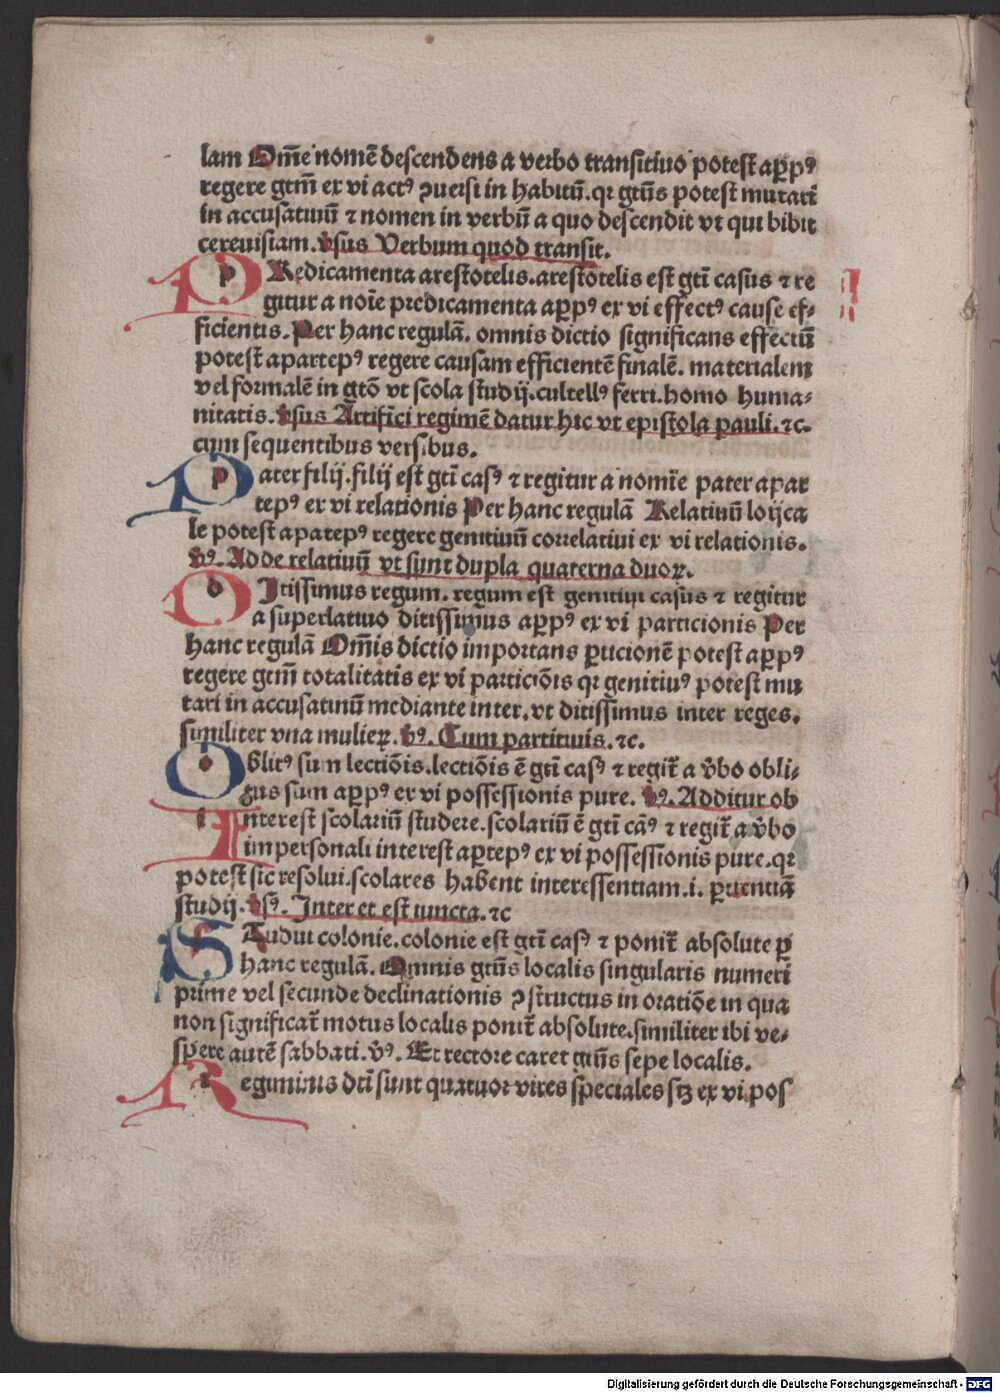 lam Om̄e nomē descendens a verbo transitiuo potest aꝑpꝰ
regere gtm̄ ex vi actꝰ ꝯuersi in habitū. qr gtūs potest mutari
in accusatiuū ⁊ nomen in verbū a quo descendit vt qui bibit
cereuisiam. Vsus Verbum quod transit.
PRedicamenta arestotelis. arestotelis est gtī casus ⁊ re
gitur a noīe predicamenta aꝑpꝰ ex vi effectꝰ cause ef⸗
ficientis. Per hanc regulā. omnis dictio significans effectū
potest apartepꝰ regere causam efficientē finalē. materialem
vel formalē in gtō vt scola studij. cultellꝰ ferri. homo huma⸗
nitatis. Vsus Artifici regimē datur hic vt epistola pauli. ⁊c.
cum sequentibus versibus.
Pater filij. filij est gtī casꝰ ⁊ regitur a nomīe pater apar
tepꝰ ex vi relationis Per hanc regulā Relatiuū loijca
le potest apartepꝰ regere genitiuū correlatiui ex vi relationis.
Vꝰ. Adde relatiuū vt sunt dupla quaterna duoꝝ.
DItissimus regum. regum est genitiui casus ⁊ regitur
a superlatiuo ditissimus aꝑpꝰ ex vi particionis Per
hanc regulā Om̄is dictio importans ꝑticionē potest aꝑpꝰ
regere gtm̄ totalitatis ex vi particiōis qr genitiuꝰ potest mu
tari in accusatiuū mediante inter. vt ditissimus inter reges.
similiter vna mulieꝝ. Vꝰ. Cum partitiuis. ⁊c.
Oblitꝰ sum lectiōis. lectiōis ē gtī casꝰ ⁊ regit̄ a v̄bo obli⸗
tus sum aꝑpꝰ ex vi possessionis pure. Vꝰ. Additur ob
Interest scolariū studere. scolariū ē gtī cāꝰ ⁊ regit̄ a v̄bo
impersonali interest aꝑtepꝰ ex vi possessionis pure. qr
potest sic resolui. scolares habent interessentiam. i. ꝑtinentiā
studij. Vsꝰ. Inter et est iuncta. ⁊c
STudui colonie. colonie est gtī casꝰ ⁊ ponit̄ absolute ꝑ
hanc regulā. Omnis gtūs localis singularis numeri
prime vel secunde declinationis ꝯstructus in oratiōe in qua
non significat̄ motus localis ponit̄ absolute. similiter ibi ve⸗
spere autē sabbati. v̄ꝰ. Et rectore caret gtūs sepe localis.
Regiminis dtī sunt quatuor vires speciales stꝫ ex vi pos
Digitalisierung gefördert durch die Deutsche Forschungsgemeinschaft - DFG